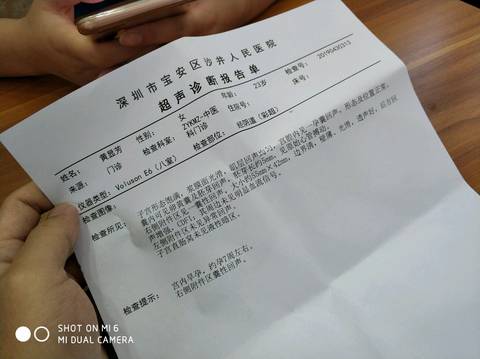 深圳市宝安区沙井人民医院
超声诊断报告单
姓名: 黄 芳 性别: 女 年龄: 23岁 检查号: 20190430313
来源: 门诊 检查科室: ZYKMZ-中医科门诊 住院号: 床号:
仪器类型: Voluson E6（八室） 检查部位: 经阴道（彩超）
检查图像:
检查所见:
子宫形态饱满，浆膜面光滑，肌层回声均匀，宫腔内见一孕囊回声，形态及位置正常，
囊内可见卵黄囊及胚芽回声，胚芽长约5mm，见原始心管搏动。
右侧附件区见一囊性回声，大小约55mm×42mm，边界清，壁薄，光滑，透声好，后方回
声增强，CDFI：其周边未见明显血流信号。
左侧附件区未见异常回声。
子宫直肠窝未见液性暗区。
检查提示:
宫内早孕，约孕7周左右。
右侧附件区囊性回声。
SHOT ON MI 6
MI DUAL CAMERA